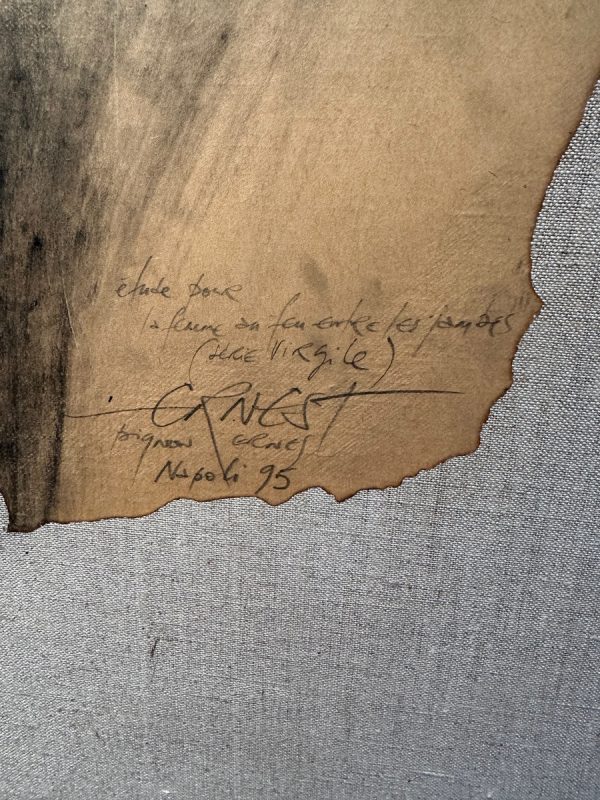 étude pour
la femme au feu entre les jambes
(série Virgile)
ERNEST
pignon ERNEST
Napoli 95